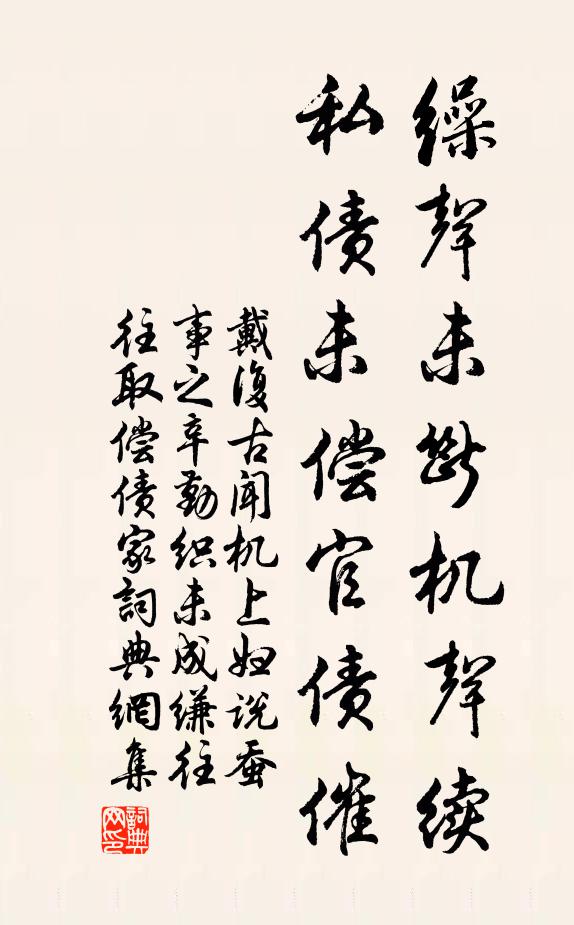 繰聲未斷机聲续
私债未偿官债催
戴復古闻机上妇说蚕
事之辛勤织未成縑往
往取偿债家詞典網集
詞典网印